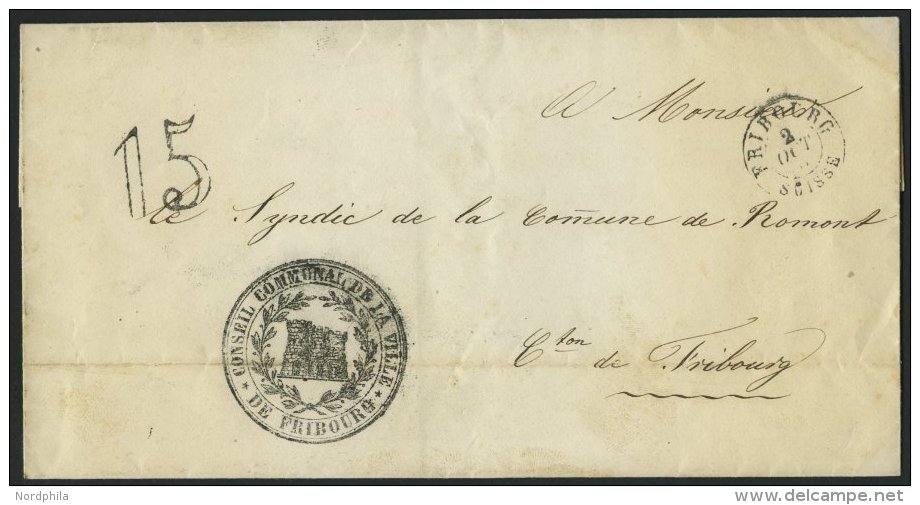 A Monsieur
FRIBOURG
2
OCT
SUISSE
15
le Syndic de la Com̄une de Romont
CONSEIL COMMUNAL DE LA VILLE
DE FRIBOURG
Cton de Fribourg
Nordphila
delcampe.net